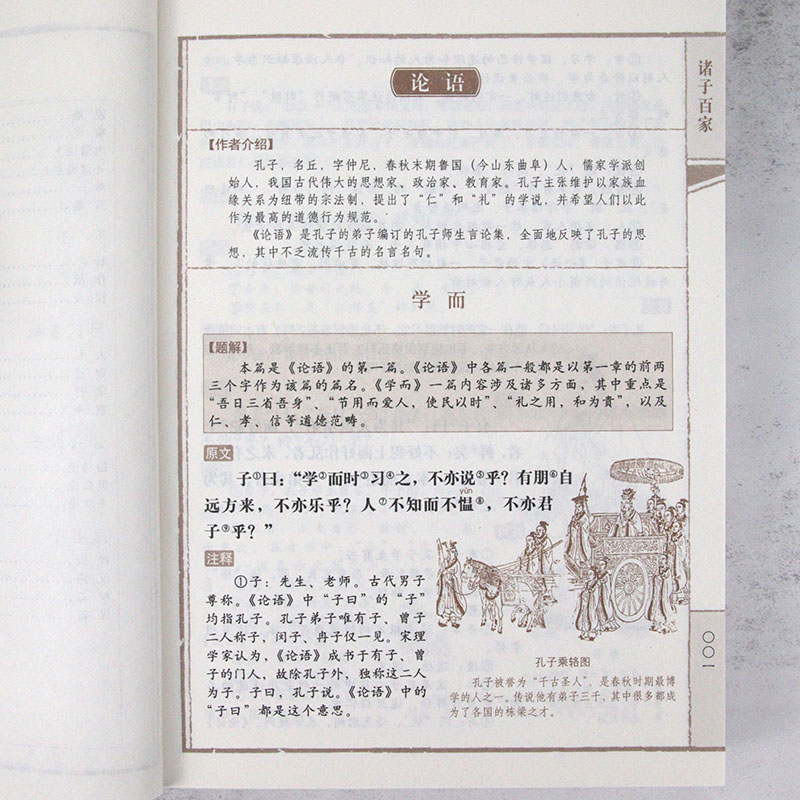 论语
诸子百家
【作者介绍】
孔子，名丘，字仲尼，春秋末期鲁国（今山东曲阜）人，儒家学派创
始人，我国古代伟大的思想家、政治家、教育家。孔子主张维护以家族血
缘关系为纽带的宗法制，提出了“仁”和“礼”的学说，并希望人们以此
作为最高的道德行为规范。
《论语》是孔子的弟子编订的孔子师生言论集，全面地反映了孔子的思
想，其中不乏流传千古的名言名句。
学而
【题解】
本篇是《论语》的第一篇。《论语》中各篇一般都是以第一章的前两
三个字作为该篇的篇名。《学而》一篇内容涉及诸多方面，其中重点是
“吾日三省吾身”、“节用而爱人，使民以时”、“礼之用，和为贵”，以及
仁、孝、信等道德范畴。
原文
子①曰：“学②而时③习④之，不亦说⑤乎？有朋⑥自
yùn
远方来，不亦乐乎？人⑦不知而不愠⑧，不亦君
子⑨乎？”
注释
①子：先生、老师。古代男子
尊称。《论语》中“子曰”的“子”
均指孔子。孔子弟子唯有子、曾子
二人称子，闵子、冉子仅一见。宋理
学家认为，《论语》成书于有子、曾
子的门人，故除孔子外，独称这二人
为子。子曰，孔子说。《论语》中的
“子曰”都是这个意思。
孔子乘辂图
孔子被誉为“千古圣人”，是春秋时期最博
学的人之一。传说他有弟子三千，其中很多都成
为了各国的栋梁之才。
〇〇一